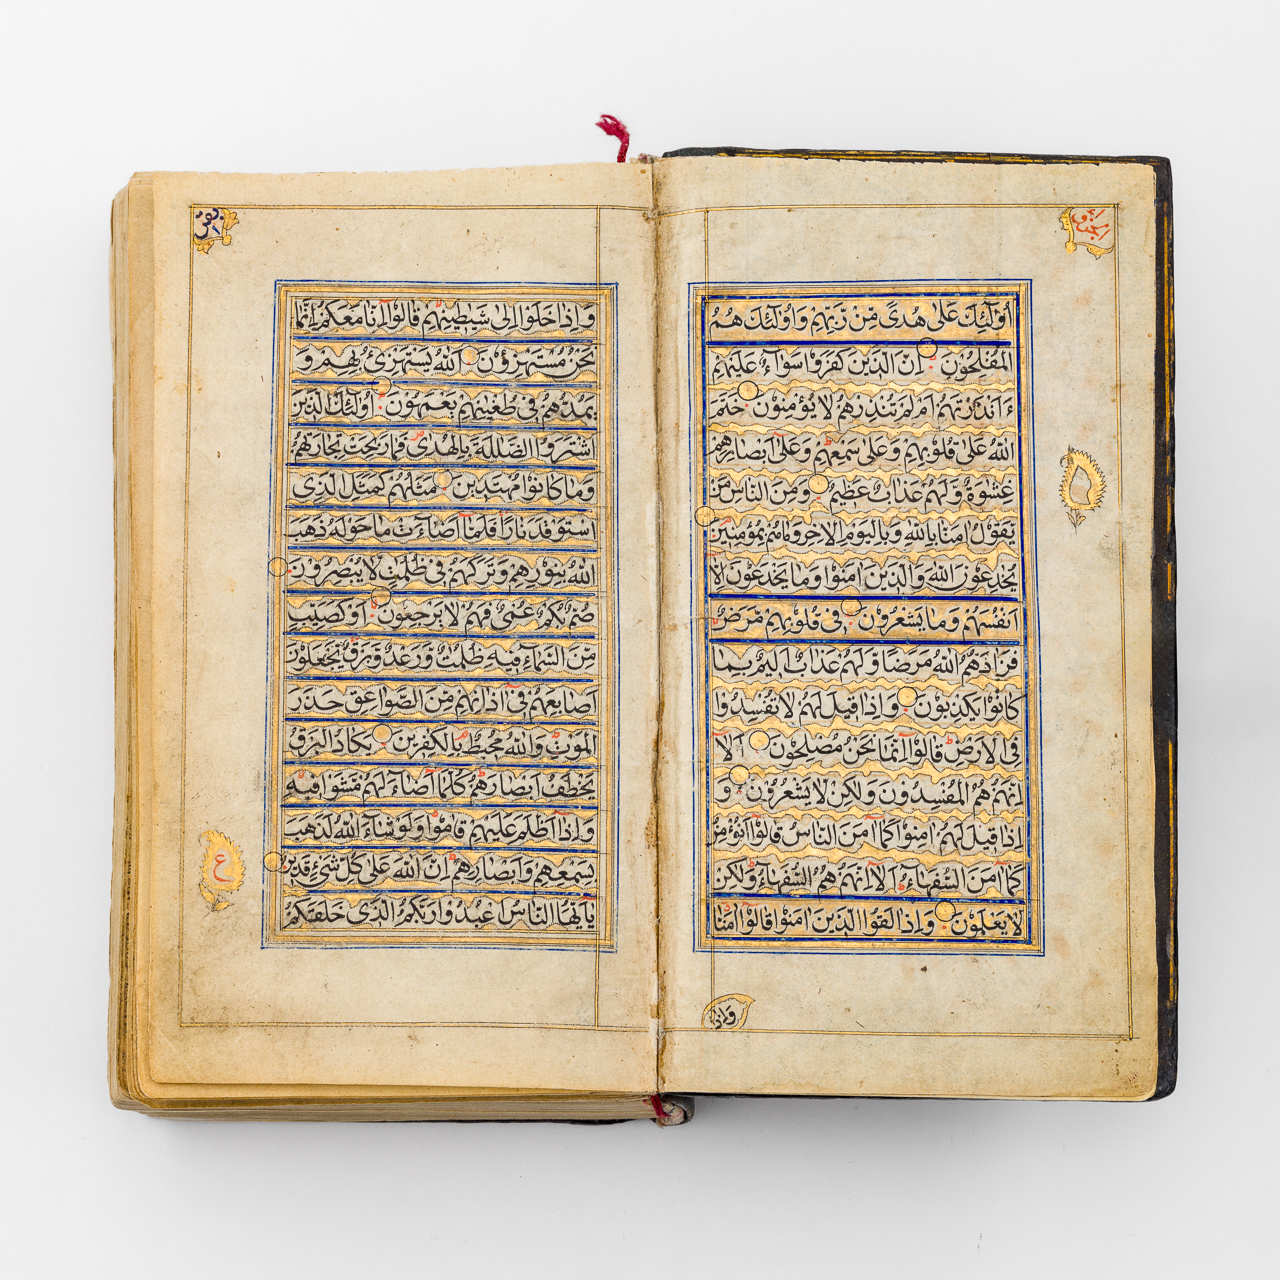 الجزء ١
أُولَٰئِكَ عَلَىٰ هُدًى مِّن رَّبِّهِمْ وَأُولَٰئِكَ هُمُ
الْمُفْلِحُونَ إِنَّ الَّذِينَ كَفَرُوا سَوَاءٌ عَلَيْهِمْ
ءَأَنذَرْتَهُمْ أَمْ لَمْ تُنذِرْهُمْ لَا يُؤْمِنُونَ خَتَمَ
اللَّهُ عَلَىٰ قُلُوبِهِمْ وَعَلَىٰ سَمْعِهِمْ وَعَلَىٰ أَبْصَارِهِمْ
غِشَاوَةٌ وَلَهُمْ عَذَابٌ عَظِيمٌ وَمِنَ النَّاسِ مَن
يَقُولُ آمَنَّا بِاللَّهِ وَبِالْيَوْمِ الْآخِرِ وَمَا هُم بِمُؤْمِنِينَ
يُخَادِعُونَ اللَّهَ وَالَّذِينَ آمَنُوا وَمَا يَخْدَعُونَ إِلَّا
أَنفُسَهُمْ وَمَا يَشْعُرُونَ فِي قُلُوبِهِم مَّرَضٌ
فَزَادَهُمُ اللَّهُ مَرَضًا وَلَهُمْ عَذَابٌ أَلِيمٌ بِمَا
كَانُوا يَكْذِبُونَ وَإِذَا قِيلَ لَهُمْ لَا تُفْسِدُوا
فِي الْأَرْضِ قَالُوا إِنَّمَا نَحْنُ مُصْلِحُونَ أَلَا
إِنَّهُمْ هُمُ الْمُفْسِدُونَ وَلَٰكِن لَّا يَشْعُرُونَ وَ
إِذَا قِيلَ لَهُمْ آمِنُوا كَمَا آمَنَ النَّاسُ قَالُوا أَنُؤْمِنُ
كَمَا آمَنَ السُّفَهَاءُ أَلَا إِنَّهُمْ هُمُ السُّفَهَاءُ وَلَٰكِن
لَّا يَعْلَمُونَ وَإِذَا لَقُوا الَّذِينَ آمَنُوا قَالُوا آمَنَّا
وَإِذَا
بقر
وَإِذَا خَلَوْا إِلَىٰ شَيَاطِينِهِمْ قَالُوا إِنَّا مَعَكُمْ إِنَّمَا
نَحْنُ مُسْتَهْزِءُونَ اللَّهُ يَسْتَهْزِئُ بِهِمْ وَ
يَمُدُّهُمْ فِي طُغْيَانِهِمْ يَعْمَهُونَ أُولَٰئِكَ الَّذِينَ
اشْتَرَوُا الضَّلَالَةَ بِالْهُدَىٰ فَمَا رَبِحَت تِّجَارَتُهُمْ
وَمَا كَانُوا مُهْتَدِينَ مَثَلُهُمْ كَمَثَلِ الَّذِي
اسْتَوْقَدَ نَارًا فَلَمَّا أَضَاءَتْ مَا حَوْلَهُ ذَهَبَ
اللَّهُ بِنُورِهِمْ وَتَرَكَهُمْ فِي ظُلُمَاتٍ لَّا يُبْصِرُونَ
صُمٌّ بُكْمٌ عُمْيٌ فَهُمْ لَا يَرْجِعُونَ أَوْ كَصَيِّبٍ
مِّنَ السَّمَاءِ فِيهِ ظُلُمَاتٌ وَرَعْدٌ وَبَرْقٌ يَجْعَلُونَ
أَصَابِعَهُمْ فِي آذَانِهِم مِّنَ الصَّوَاعِقِ حَذَرَ
الْمَوْتِ وَاللَّهُ مُحِيطٌ بِالْكَافِرِينَ يَكَادُ الْبَرْقُ
يَخْطَفُ أَبْصَارَهُمْ كُلَّمَا أَضَاءَ لَهُم مَّشَوْا فِيهِ
وَإِذَا أَظْلَمَ عَلَيْهِمْ قَامُوا وَلَوْ شَاءَ اللَّهُ لَذَهَبَ
بِسَمْعِهِمْ وَأَبْصَارِهِمْ إِنَّ اللَّهَ عَلَىٰ كُلِّ شَيْءٍ قَدِيرٌ
يَا أَيُّهَا النَّاسُ اعْبُدُوا رَبَّكُمُ الَّذِي خَلَقَكُمْ
ع